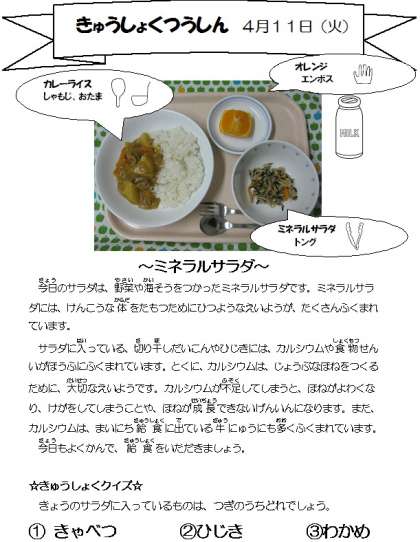 きゅうしょくつうしん 4月11日（火）
カレーライス
しゃもじ、おたま
オレンジ
エンボス
MILK
ミネラルサラダ
トング
～ミネラルサラダ～
今日のサラダは、野菜や海そうをつかったミネラルサラダです。ミネラルサラ
ダには、けんこうな体をたもつためにひつようなえいようが、たくさんふくまれ
ています。
サラダに入っている、切り干しだいこんやひじきには、カルシウムや食物せん
いがほうふにふくまれています。とくに、カルシウムは、じょうぶなほねをつくる
ために、大切なえいようです。カルシウムが不足してしまうと、ほねがよわくな
り、けがをしてしまうことや、ほねが成長できないげんいんになります。また、
カルシウムは、まいにち給食に出ている牛にゅうにも多くふくまれています。
今日もよくかんで、給食をいただきましょう。
☆きゅうしょくクイズ☆
きょうのサラダに入っているものは、つぎのうちどれでしょう。
① きゃべつ ②ひじき ③わかめ